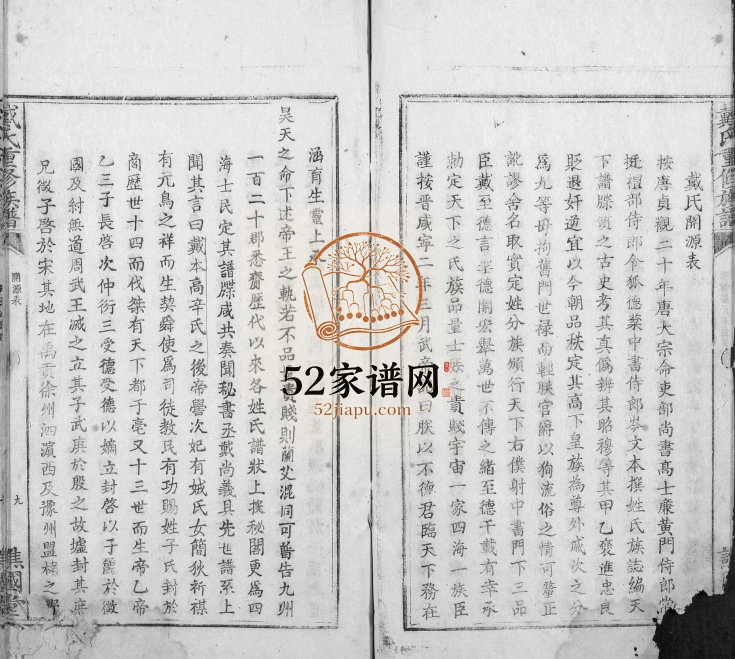 戴氏重修族譜
戴氏開源表
按唐貞觀二十年唐太宗命吏部尚書高士廉黄門侍郎
挺禮部侍郎令狐德棻中書侍郎岑文本撰姓氏族誌編天
下譜牒質之古史考其真偽辨其昭穆等其甲乙褒進忠良
貶退奸逆宜以今朝品秩定其高下皇族為尊外戚次之分
為九等毋拘舊門世禄尚輕朕官爵以狥流俗之情可釐正
訛謬舍名取實定姓分族頒行天下右僕射中書門下三品
臣戴至德言 德開宏舉萬世不傳之緒至德千載有幸承
勅定天下之氏族品量士族之貴賤宇宙一家四海一族臣
謹按晋咸寧二年三月武帝 曰朕以不德君臨天下務在
涵育生靈上
昊天之命下述帝王之軌若不品 貴賤則蘭艾混同可普告九州
一百二十郡悉賫歷代以來各姓氏譜狀上揆秘閣更為四
海士民定其譜牒咸共奏聞秘書丞戴尚義具先世譜系上
聞其言曰戴本高辛氏之後帝嚳次妃有娀氏女簡狄祈禖
有元鳥之祥而生契舜使為司徒教民有功賜姓子氏封於
商歷世十四而伐桀有天下都于亳又十三世而生帝乙帝
乙三子長啓次仲衍三受德受德以嫡立封啓以子爵於微
國及紂無道周武王滅之立其子武庚於殷之故墟封其庶
兄微子啓於宋其地在禹貢徐州泗濱西及豫州盟豬之野
戴氏重修族譜
開源表
九
譙國堂
52家谱网
52jiapu.com